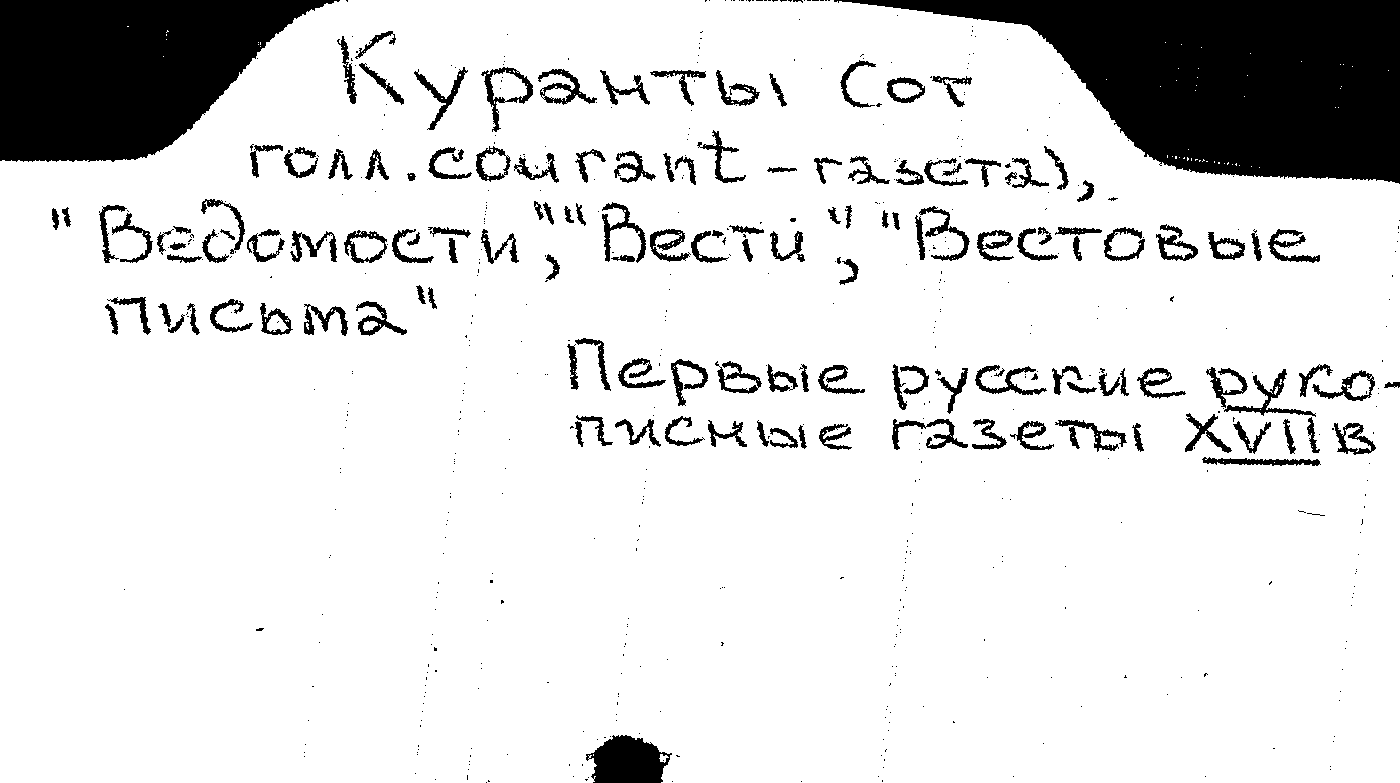 Куранты (от
голл. courant - газета),
"Ведомости", "Вести", "Вестовые
письма"
Первые русские руко-
писные газеты XVII в